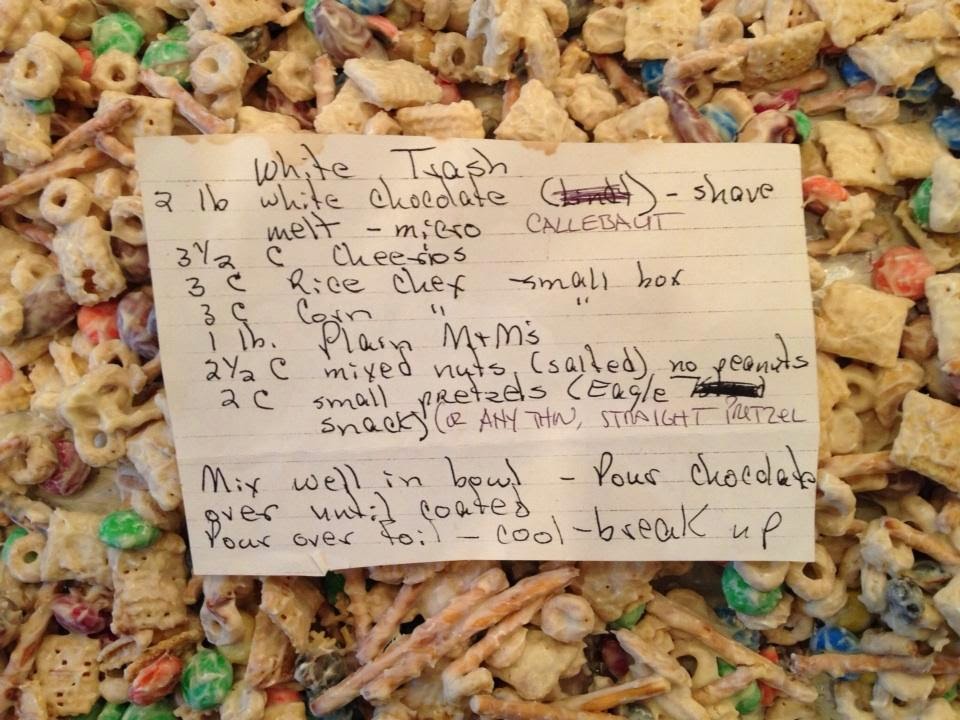 White Trash
2 lb white chocolate ( ) - shave
melt - micro CALLEBAUT
3 1/2 C Cheerios
3 C Rice chex - small box
3 C Corn " "
1 lb. Plain M+M's
2 1/2 C mixed nuts (salted) no peanuts
2 C small pretzels (Eagle
snack) (OR ANY THIN, STRAIGHT PRETZEL
Mix well in bowl - Pour chocolate
over until coated
Pour over foil - cool - break up